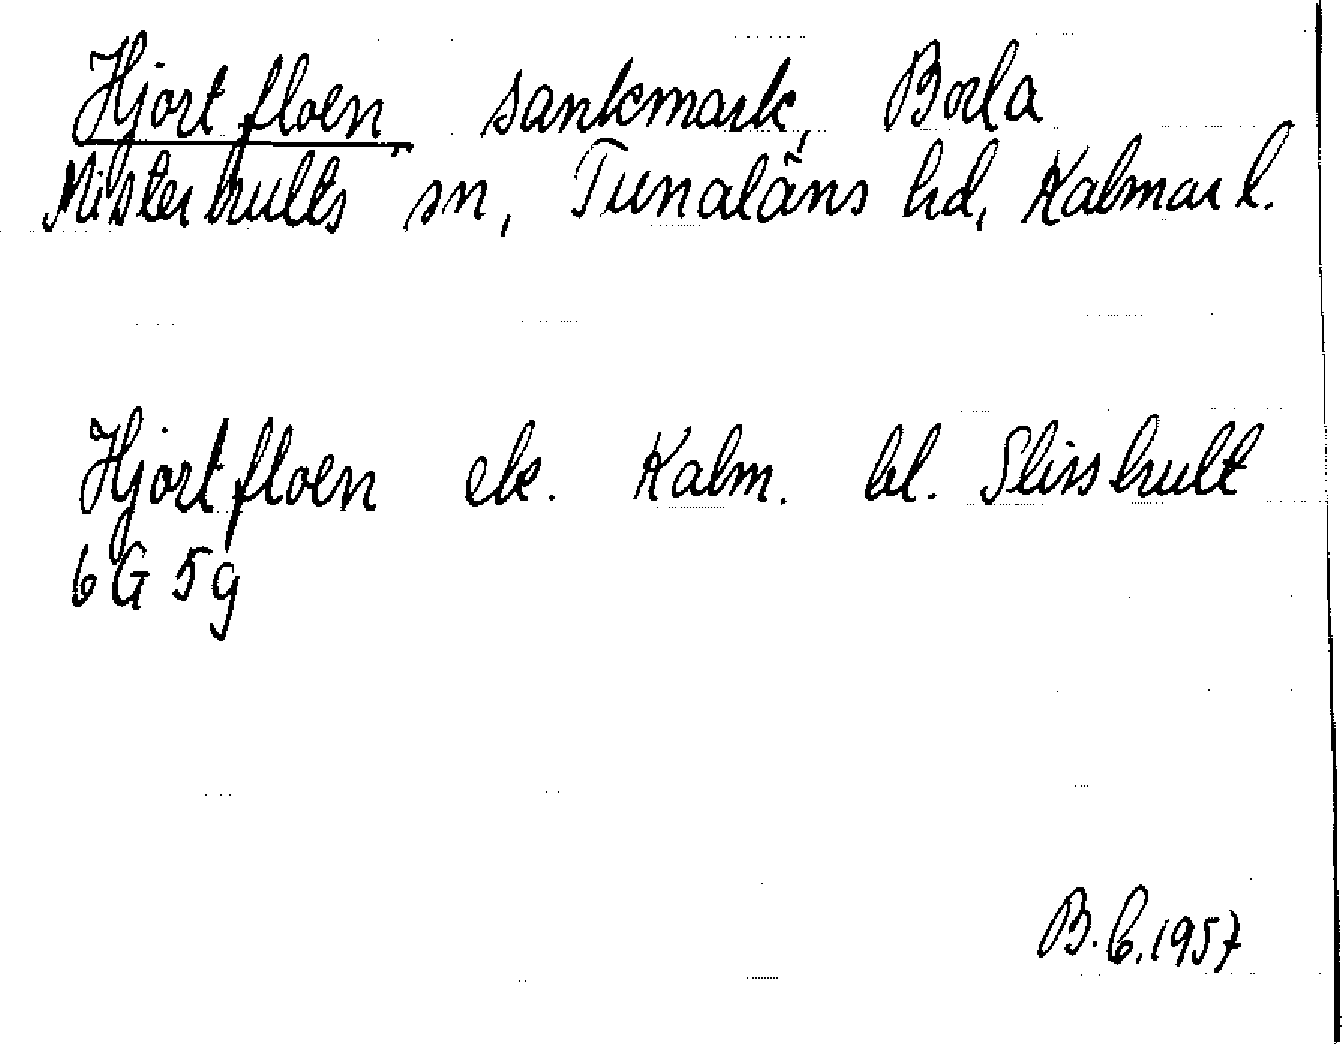 Hjortfloen, sankmark, Boda
Misterhults sn, Tunaläns hd, Kalmar l.
Hjortfloen ek. Kalm. bl. Slisshult
6G 5g
B.C. 1957